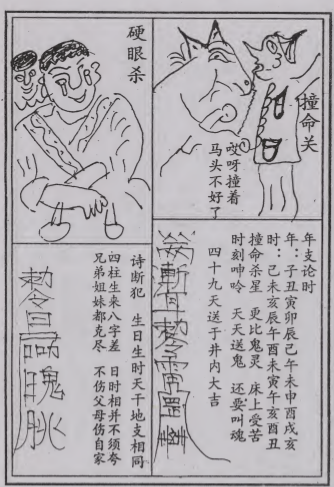 撞命关
哎呀撞着
马头不好了
年支论时
年：子丑寅卯辰己午未申酉戌亥
时：己未亥辰午酉未寅午亥酉丑
撞命杀星 更比鬼灵 床上受苦
时刻呻吟 天天送鬼 还要叫魂
四十九天送于井内大吉
硬眼杀
诗断犯 生日生时天干地支相同
四柱生来八字差 日时相并不须夸
兄弟姐妹都克尽 不伤父母伤自家